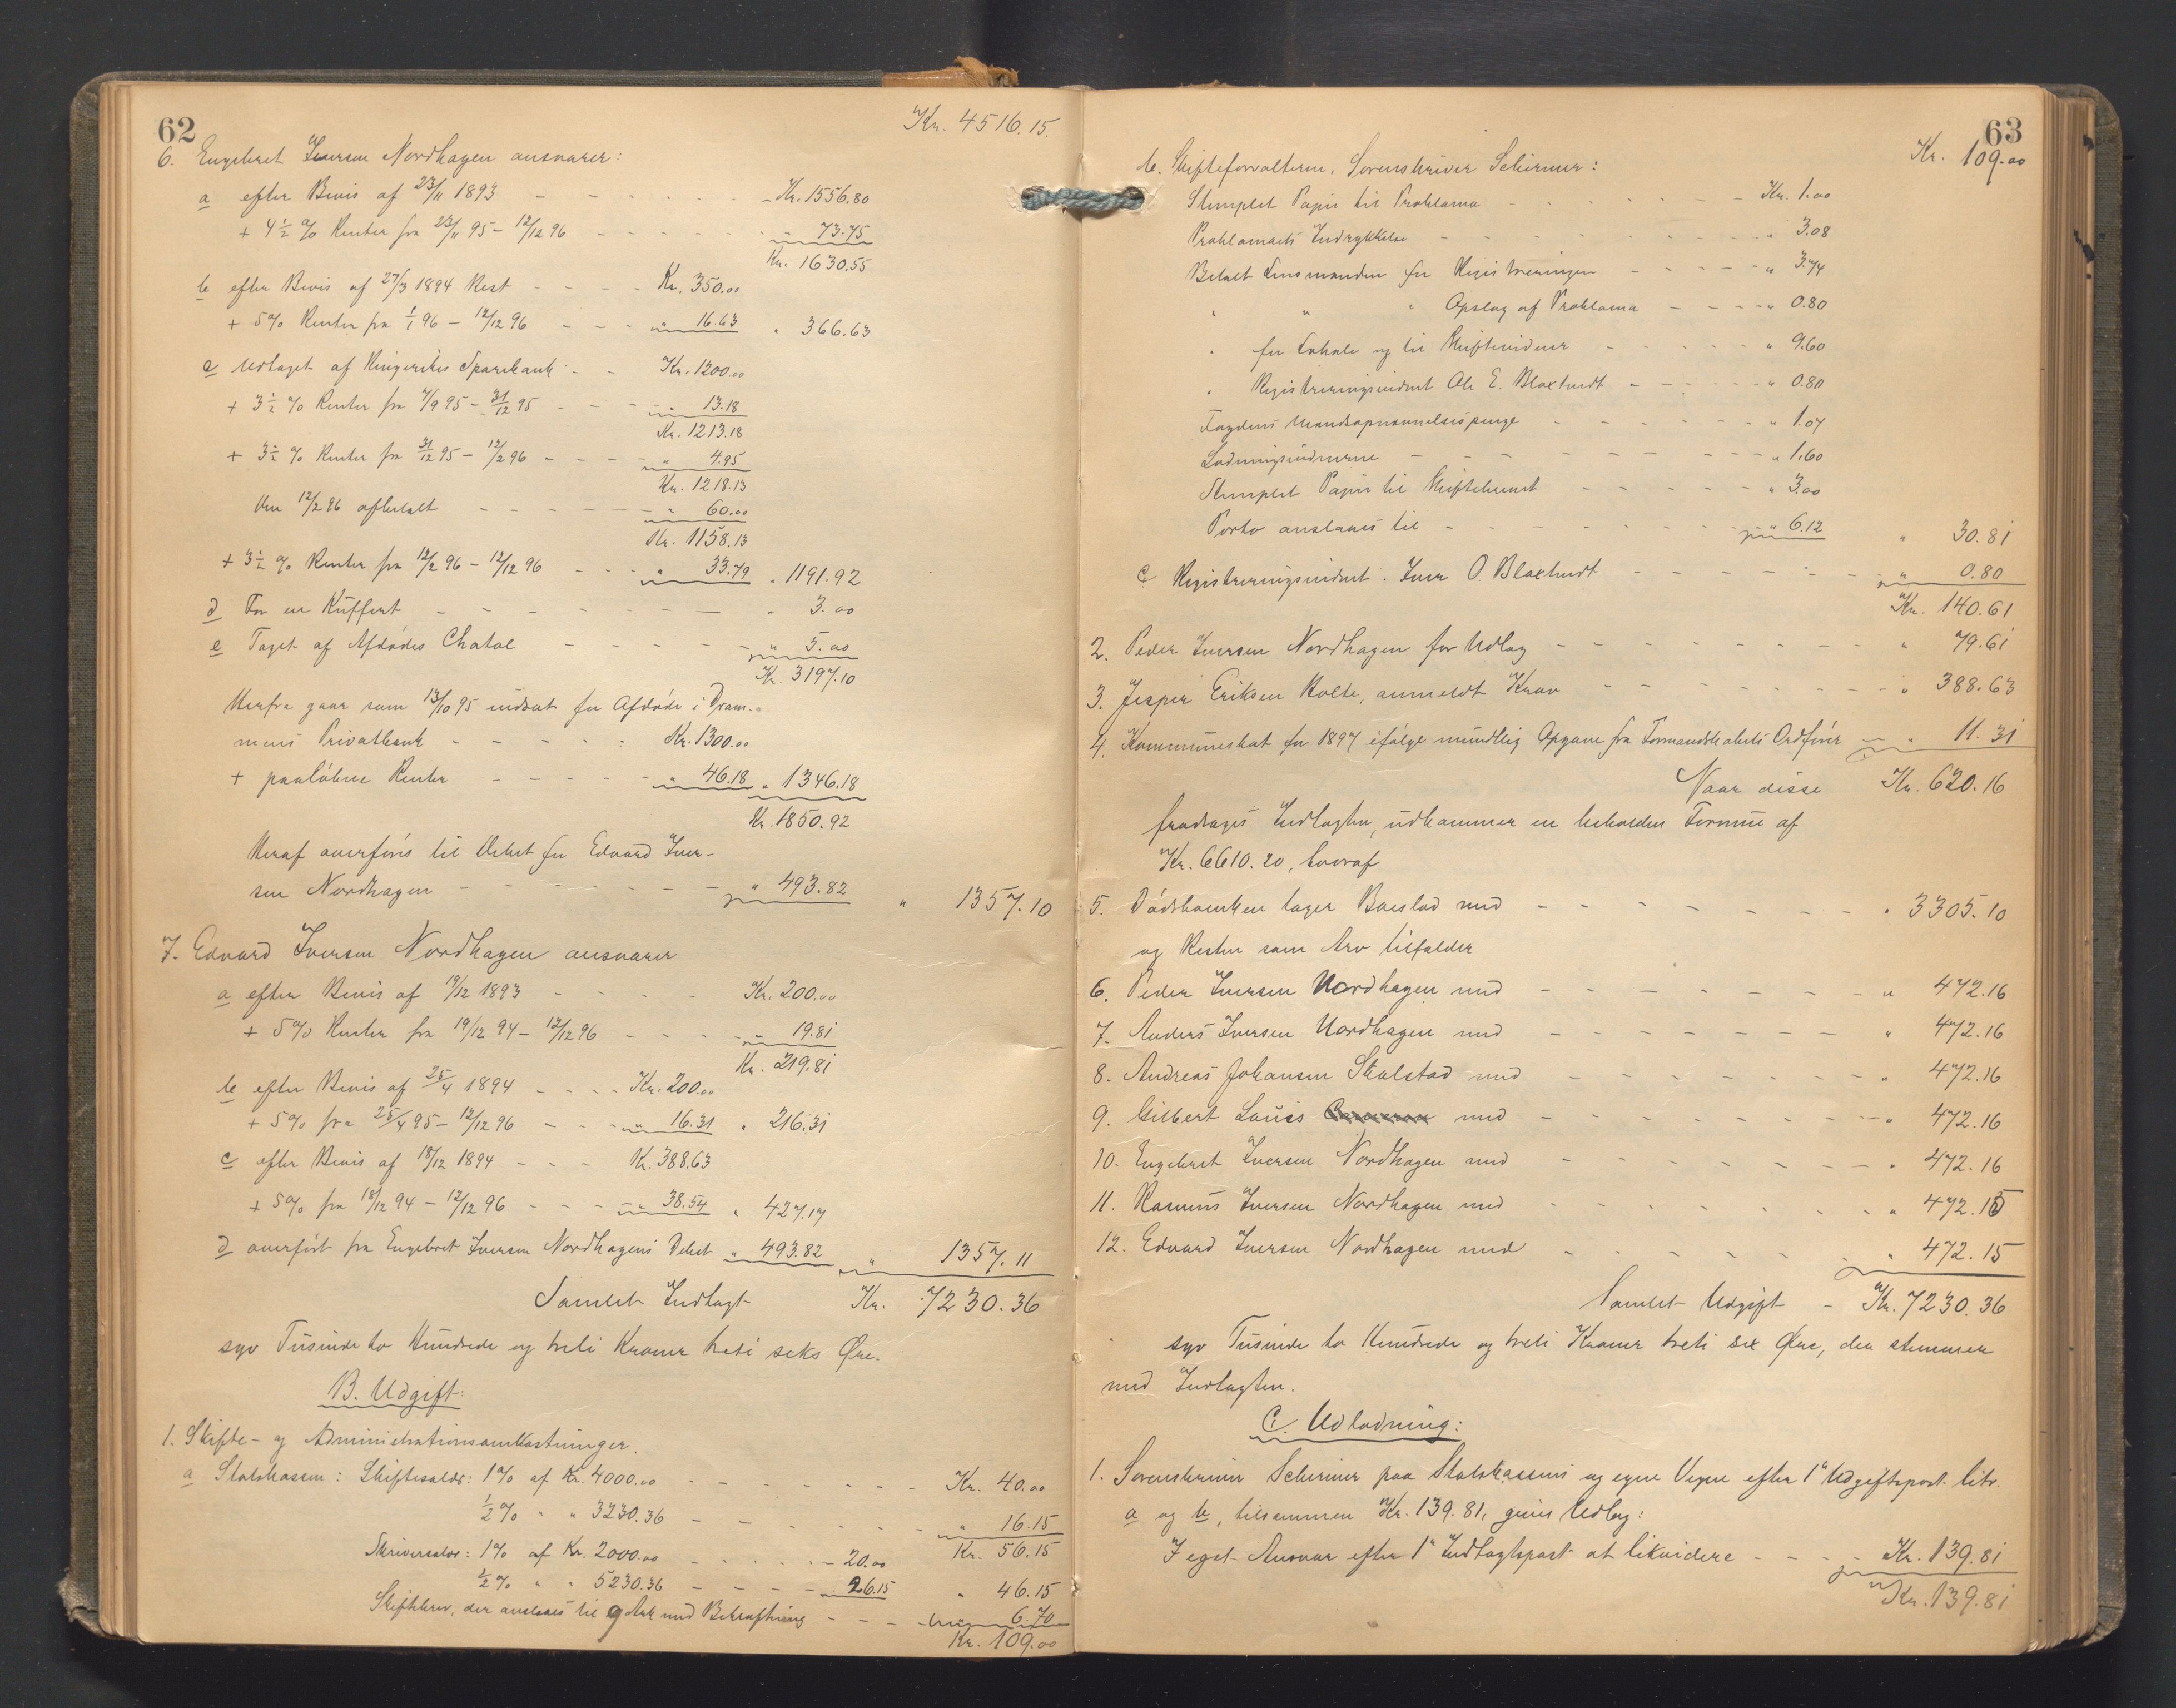 62
Kr. 4516.15.
6. Engebret Iversen Nordhagen ansvarer:
a efter Bevis af 23/11 1893 - - - - - Kr. 1556.80
+ 4 1/2 % Renter fra 23/11 95 - 12/12 96 - - - - - " 73.75
Kr. 1630.55
b efter Bevis af 27/3 1894 Rest - - - - Kr. 350.00
+ 5% Renter fra 1/1 96 - 12/12 96 - - - " 16.63 " 366.63
c Udtaget af Ringerikes Sparebank - - Kr. 1200.00
+ 3 1/2 % Renter fra 7/9 95 - 31/12 95 - - - " 13.18
Kr. 1213.18
+ 3 1/2 % Renter fra 31/12 95 - 12/2 96 - - - " 4.95
Kr. 1218.13
Den 12/2 96 afbetalt - - - - - " 60.00
Kr. 1158.13
+ 3 1/2 % Renter fra 12/2 96 - 12/12 96 - - - " 33.79 " 1191.92
d For en Kuffert - - - - - - - " 3.00
e Taget af Afdødes Chatol - - - - - " 5.00
Kr. 3197.10
Herfra gaar som 13/10 95 indsat for Afdøde i Dram-
mens Privatbank - - - - - Kr. 1300.00
+ paaløbne Renter - - - - - " 46.18 " 1346.18
Kr. 1850.92
Heraf overføres til Debet for Edvard Iver-
sen Nordhagen - - - - - - - " 493.82 " 1357.10
7. Edvard Iversen Nordhagen ansvarer
a efter Bevis af 19/12 1893 - - - - Kr. 200.00
+ 5% Renter fra 19/12 94 - 12/12 96 - - - - " 19.81
Kr. 219.81
b efter Bevis af 25/4 1894 - - - - Kr. 200.00
+ 5% fra 25/4 95 - 12/12 96 - - - " 16.31 " 216.31
c efter Bevis af 18/12 1894 - - - Kr. 388.63
+ 5% fra 18/12 94 - 12/12 96 - - - " 38.54 " 427.17
d overført fra Engebret Iversen Nordhagens Debet " 493.82 " 1357.11
Samlet Indtægt Kr. 7230.36
syv Tusinde to Hundrede og treti Kroner treti seks Øre.
B. Udgift:
1. Skifte- og Administrationsomkostninger.
a Statskassen: Skiftesalær: 1% af Kr. 4000.00 - - - - - - Kr. 40.00
1/2 % " " 3230.36 - - - - - - " 16.15
Kr. 56.15
Skriversalær: 1% af Kr. 2000.00 - - - - - 20.00
1/2 % " " 5230.36 - - - - " 26.15 " 46.15
Skiftebrev, der ansLaaes til 9 Ark med Bekræftning - - - " 6.70
Kr. 109.00
63
Kr. 109.00
b. Skifteforvalteren, Sorenskriver Scheimer:
Stemplet Papir til Proklama - - - - - - Kr. 1.00
Proklamaets Indrykkelse - - - - - - " 3.08
Betalt Lensmanden for Registreringen - - - - - " 3.74
" " " Opslag af Proklama - - - - " 0.80
" for Lokale og til Skiftevidner - - - - - " 9.60
" Registreringsvidnet Ole E. Bloxtvedt - - - - - " 0.80
Fogdens Mandsopnævnelsespenge - - - - - - " 1.07
Lodningsvidnerne - - - - - - - " 1.60
Stemplet Papir til Skiftebrevet - - - - - " 3.00
Porto anslaaes til - - - - - - - " 6.12 " 30.81
c Registreringsvidnet Iver O. Bloxtvedt - - - - - - " 0.80
Kr. 140.61
2. Peder Iversen Nordhagen for Udlæg - - - - - - - " 79.61
3. Jesper Eriksen Holte, anmeldt Krav - - - - - - - " 388.63
4. Kommuneskat for 1897 ifølge mundtlig Opgave fra Formandskabets Ordfører - " 11.31
Naar disse Kr. 620.16
fradrages Indtægten, udkommer en beholden Formue af
Kr. 6610.20, hvoraf
5. Dødsboenken tager Boeslod med - - - - - - - " 3305.10
og Resten som Arv tilfalder
6. Peder Iversen Nordhagen med - - - - - - - " 472.16
7. Anders Iversen Nordhagen med - - - - - - - " 472.16
8. Andreas Johansen Skalstad med - - - - - - - " 472.16
9. Gilbert Louis med - - - - - - - " 472.16
10. Engebret Iversen Nordhagen med - - - - - - - " 472.16
11. Rasmus Iversen Nordhagen med - - - - - - - " 472.15
12. Edvard Iversen Nordhagen med - - - - - - - " 472.15
Samlet Udgift - Kr. 7230.36
syv Tusinde to Hundrede og treti Kroner treti sex Øre, der stemmer
med Indtægten.
C. Udlodning:
1. Sorenskriver Scheimer paa Statskassens og egne Vegne efter 1ste Udgiftspost litr.
a og b, tilsammen Kr. 139.81, gives Udlæg:
I eget Ansvar efter 1ste Indtægtspost at likvidere - - - - Kr. 139.81
Kr. 139.81